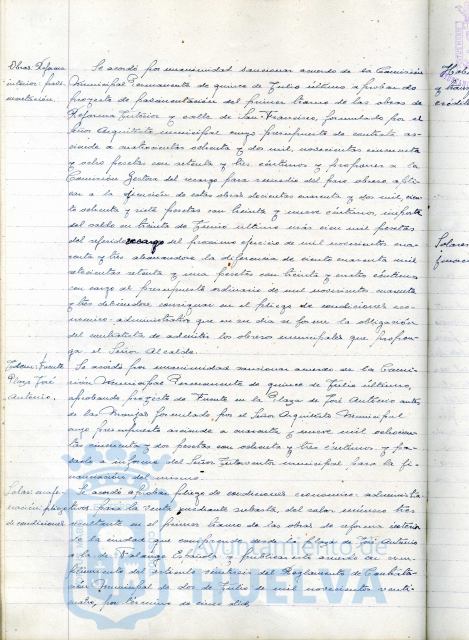 Obras Reforma
interior: pavi-
mentación.
Se acordó por unanimidad sancionar acuerdo de la Comisión
Municipal Permanente de quince de Julio último aprobando
proyecto de pavimentación del primer tramo de las obras de
Reforma Interior y calle de San Francisco, formulado por el
Señor Arquitecto municipal cuyo presupuesto de contrata as-
ciende a cuatrocientas ochenta y dos mil, novecientas cincuenta
y ocho pesetas con setenta y tres céntimos y proponer a la
Comisión Gestora del recargo para remedio del paro obrero apli-
can a la ejecución de estas obras doscientas cuarenta y dos mil, cien-
to ochenta y siete pesetas con treinta y nueve céntimos, importe
del saldo en treinta de Junio último más cien mil pesetas
del referido recargo del próximo ejercicio de mil novecientos cua-
renta y tres abonándose la diferencia de ciento cuarenta mil
setecientas setenta y una pesetas con treinta y cuatro céntimos
con cargo al presupuesto ordinario de mil novecientos cuarenta
y tres debiéndose consignar en el pliego de condiciones eco-
nómico-administrativas que en su día se forme la obligación
del contratista de admitir los obreros municipales que propon-
ga el Señor Alcalde.
Fuente
Plaza José
Antonio.
Se acordó por unanimidad sancionar acuerdo de la Comi-
sión Municipal Permanente de quince de Julio último,
aprobando proyecto de Fuente en la Plaza de José Antonio antes
de las Monjas formulado por el Señor Arquitecto Municipal
cuyo presupuesto asciende a cuarenta y nueve mil, setecien-
tas cincuenta y dos pesetas con ochenta y tres céntimos y pa-
sarlo a informe del Señor Interventor municipal para la fi-
nanciación del mismo.
Solar:
pliego
de condiciones
Se acordó aprobar pliego de condiciones económico-administra-
tivas para la venta mediante subasta, del solar número tres
resultante en el primer tramo de las obras de reforma interior
de la ciudad que comprende desde la plaza de José Antonio
a la de Falange Española y publicar el anuncio en cum-
plimiento del artículo veintiséis del Reglamento de Contrata-
ción Municipal de dos de Julio de mil novecientos veinti-
cuatro, por término de cinco días.
Solares
Ayuntamiento de
HUELVA